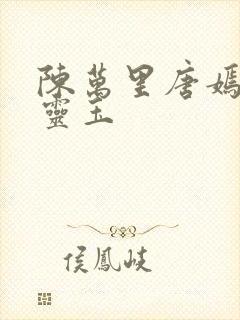 陳萬里唐嫣
靈玉
侯鳳岐